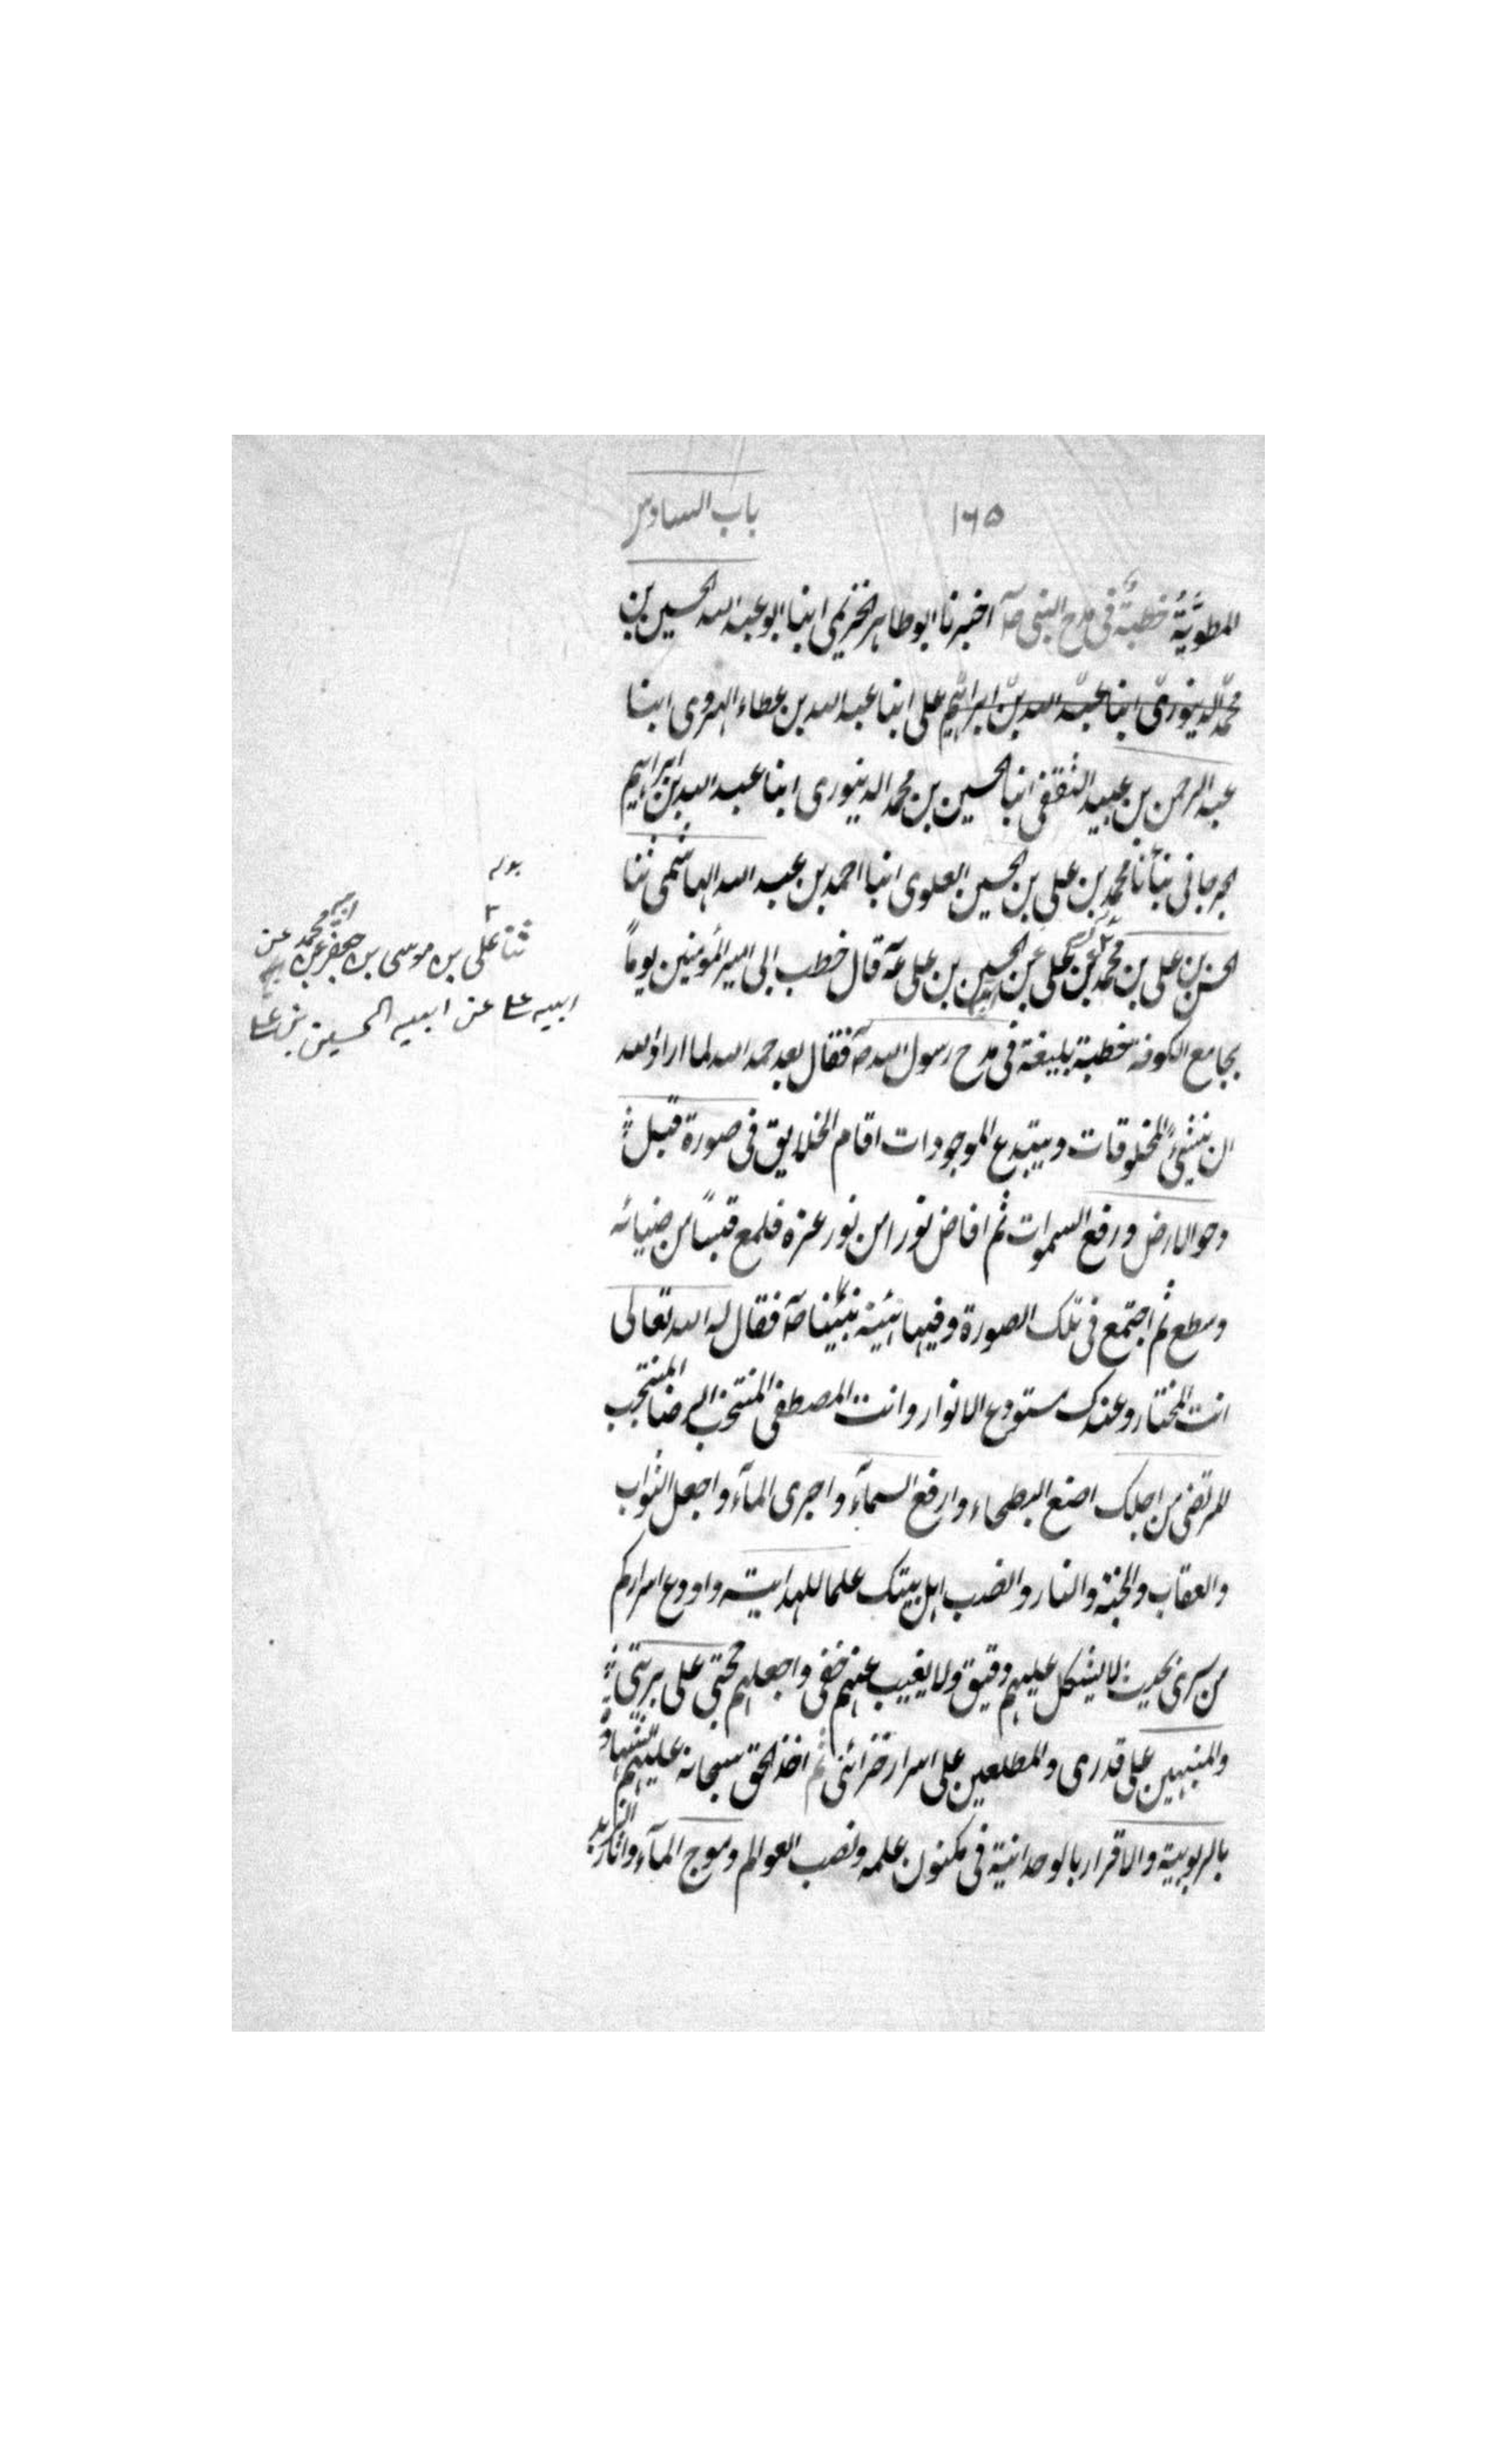 ١٦٥
باب السادس
المطويّة خطبة في مدح النبي صلى اخبرنا ابو طاهر الخزيمي انبا ابو عبد الله الحسين بن
محمد الدينوري انبا عبد الله بن ابراهيم علي انبا عبد الله بن عطاء الهروي ابنا
عبد الرحمن بن عبيد الثقفي انبا الحسين بن محمد الدينوري ابنا عبد الله بن ابراهيم
الجرجاني نبأنا محمد بن علي بن الحسين العلوي انبا احمد بن عبد الله الهاشمي ثنا
الحسن بن علي بن محمد عن علي عن الحسين بن علي عـ قال خطب ابي امير المؤمنين يوماً
بجامع الكوفة خطبة بليغة في مدح رسول الله صـ فقال بعد حمد الله لما اراد الله
ان ينشئ المخلوقات ويبتدع الموجودات اقام الخلايق في صورة قبل
دحو الارض ورفع السموات ثم افاض نورا من نور عزه فلمع قبساً من ضيائه
وسطع ثم اجتمع في تلك الصورة وفيها هيئة نبينا صـ فقال له الله تعالى
انت المختار وعندك مستودع الانوار وانت المصطفى المنتخب الرضا المنتجب
المرتضى من اجلك اضع البطحاء وارفع السمآء واجرى المآء واجعل الثواب
والعقاب والجنة والنار وانصب اهل بيتك علما للهداية واودع اسراركم
من سرى بحيث لا يشكل عليهم دقيق ولا يغيب عنهم خفى واجعلهم حجتي على بريتي
والمنبهين على قدرى والمطلعين على اسرار خزائنى ثم اخذ الحق سبحانه عليهم الشهادة
بالربوبية والاقرار بالوحدانية في مكنون علمه ونصب العوالم وموج المآء واثار الزبد
ثنا علي بن موسى بن جعفر عن ابيه محمد عن
ابيه علي عن ابيه الحسين بن علي